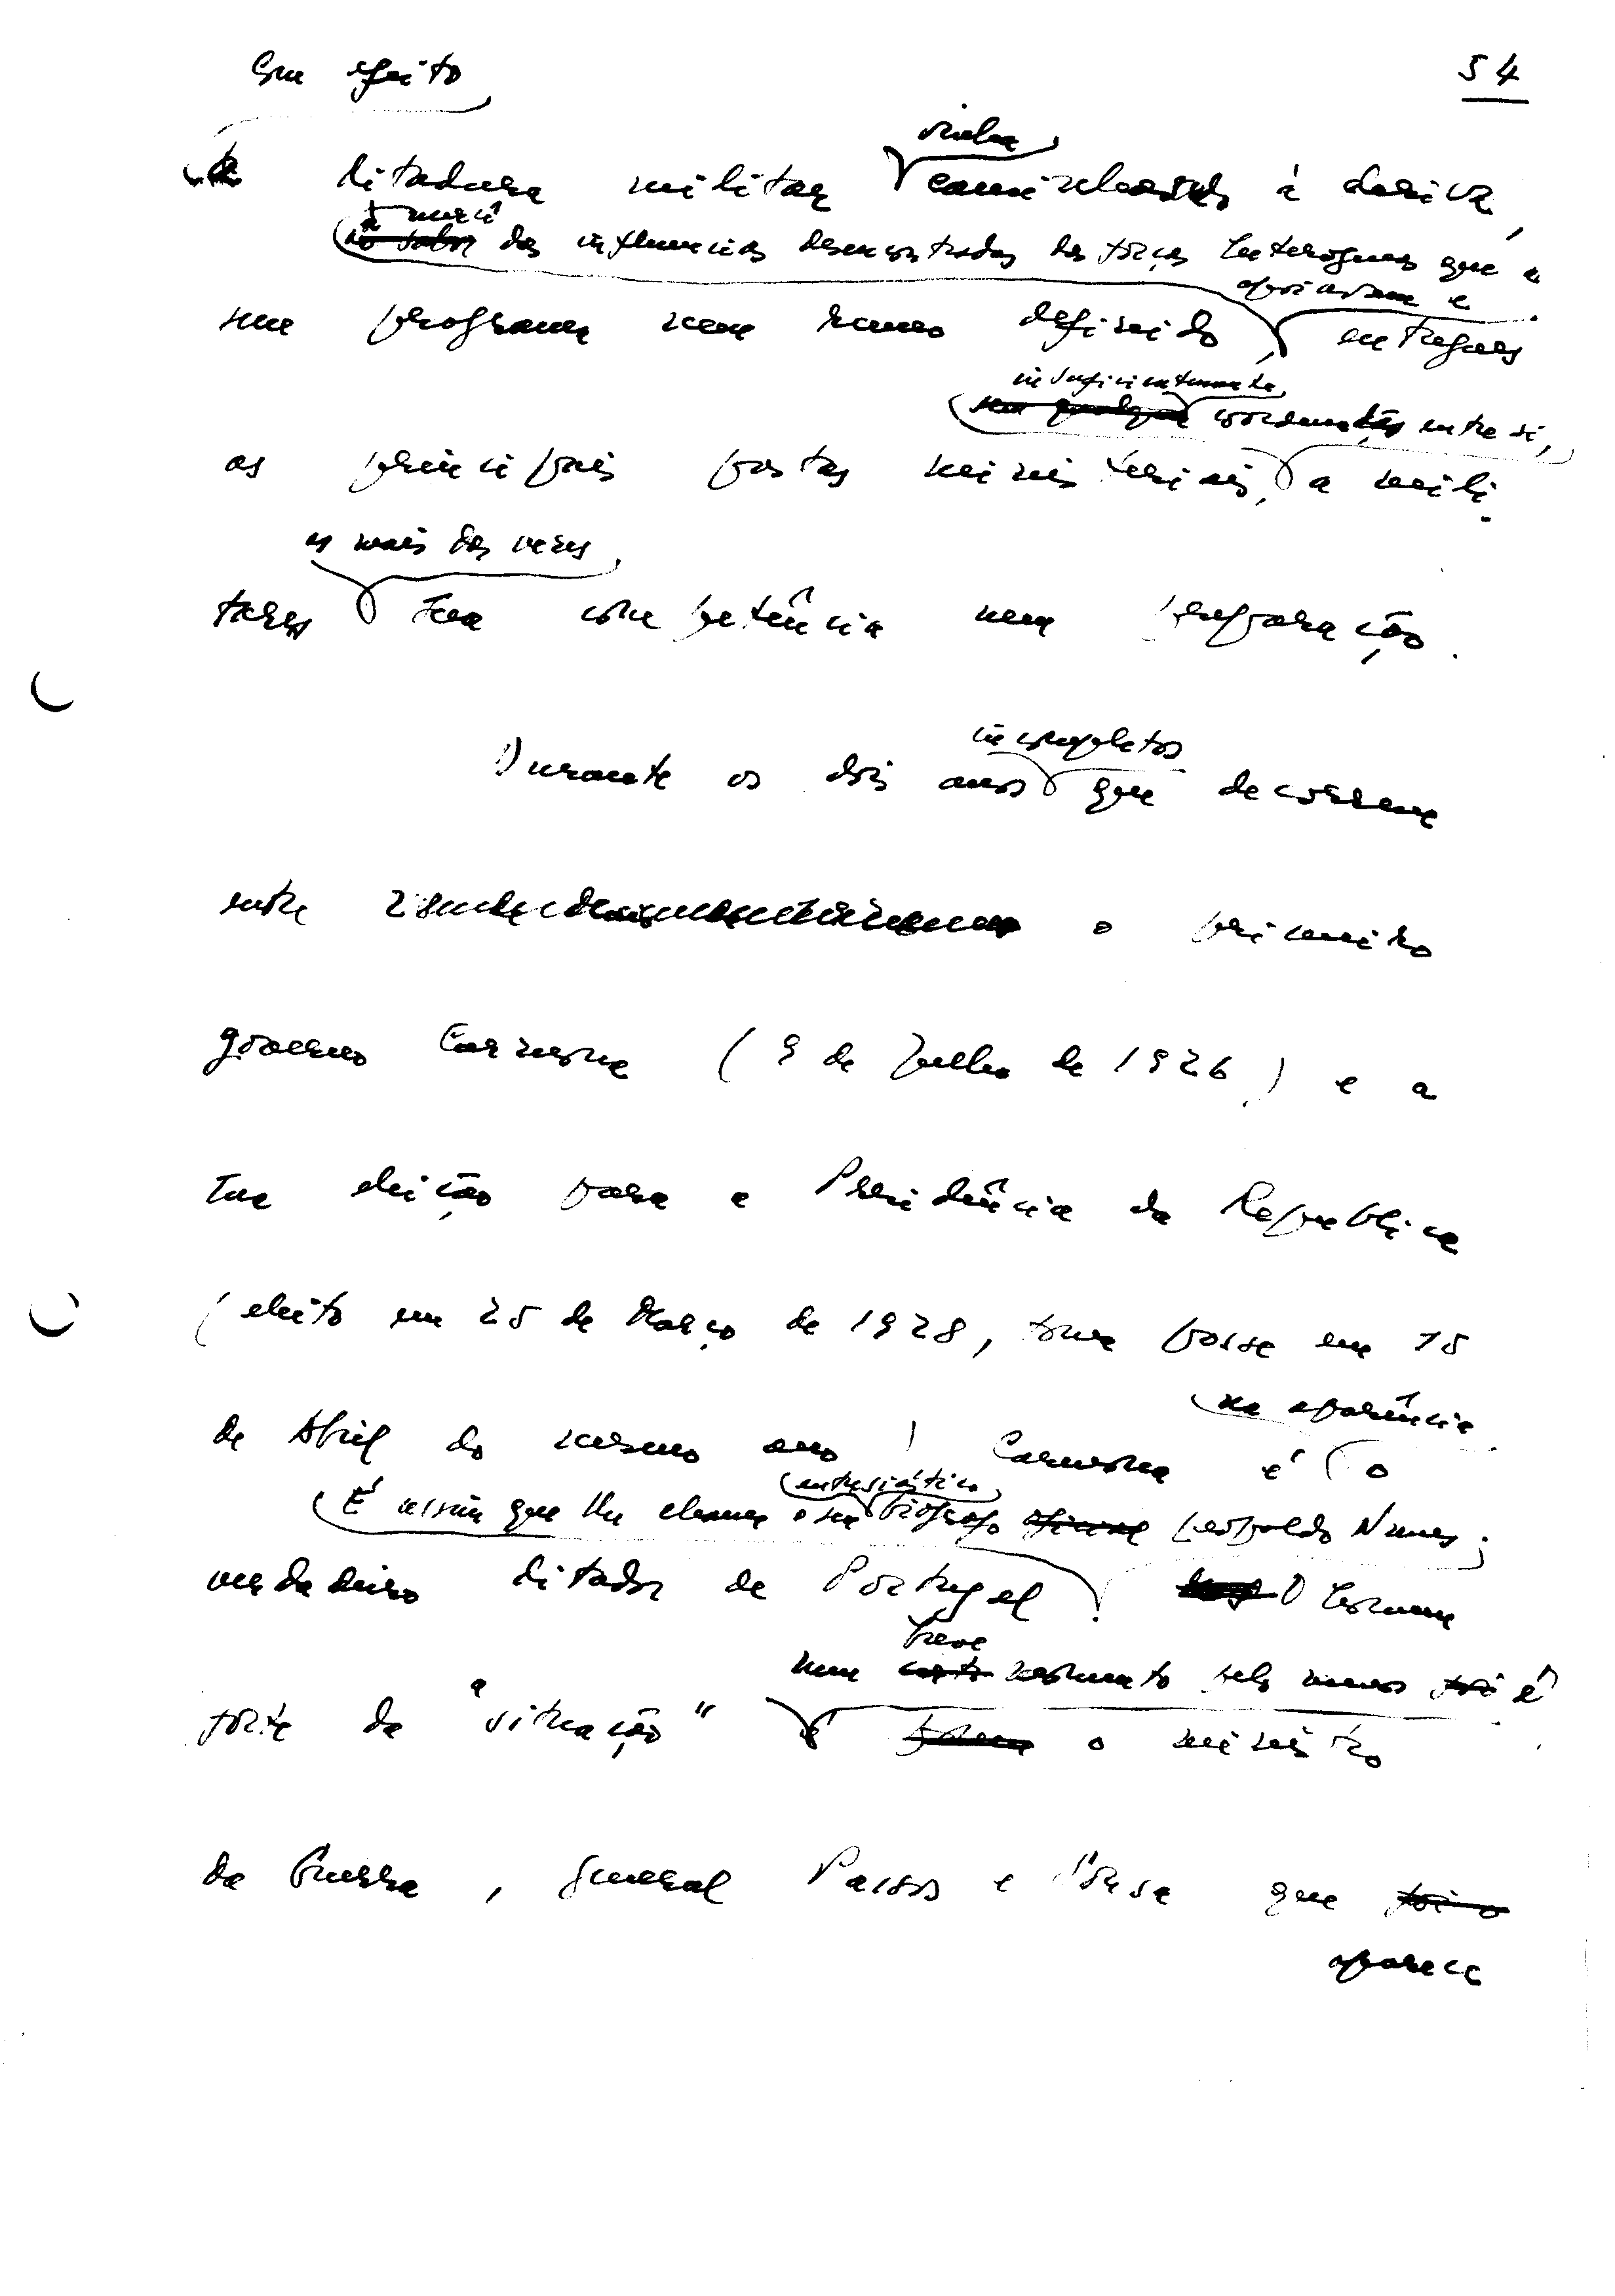 Com efeito
54
vinha
a ditadura militar caminhando à deriva,
à mercê
ao sabor das influências desencontradas das forças heterogéneas que a
apoiavam e
sem programa nem rumo definido, entregues
insuficientemente
sem qualquer coordenadas entre si,
as principais pastas ministeriais, a mili-
as mais das vezes
tares sem competência nem preparação.
incompletos
Durante os dois anos que decorrem
entre o primeiro
governo Carmona (9 de Julho de 1926) e a
sua eleição para a Presidência da República
(eleito em 25 de Março de 1928, toma posse em 15
na aparência
de Abril do mesmo ano) Carmona é o
entusiástico
É assim que lhe chama o seu biógrafo oficial Leopoldo Nunes;
verdadeiro ditador de Portugal. O homem
breve
num curto momento pelo menos foi é
forte da "situação" é o ministro
da Guerra, general Passos e Sousa que foi o
aparece